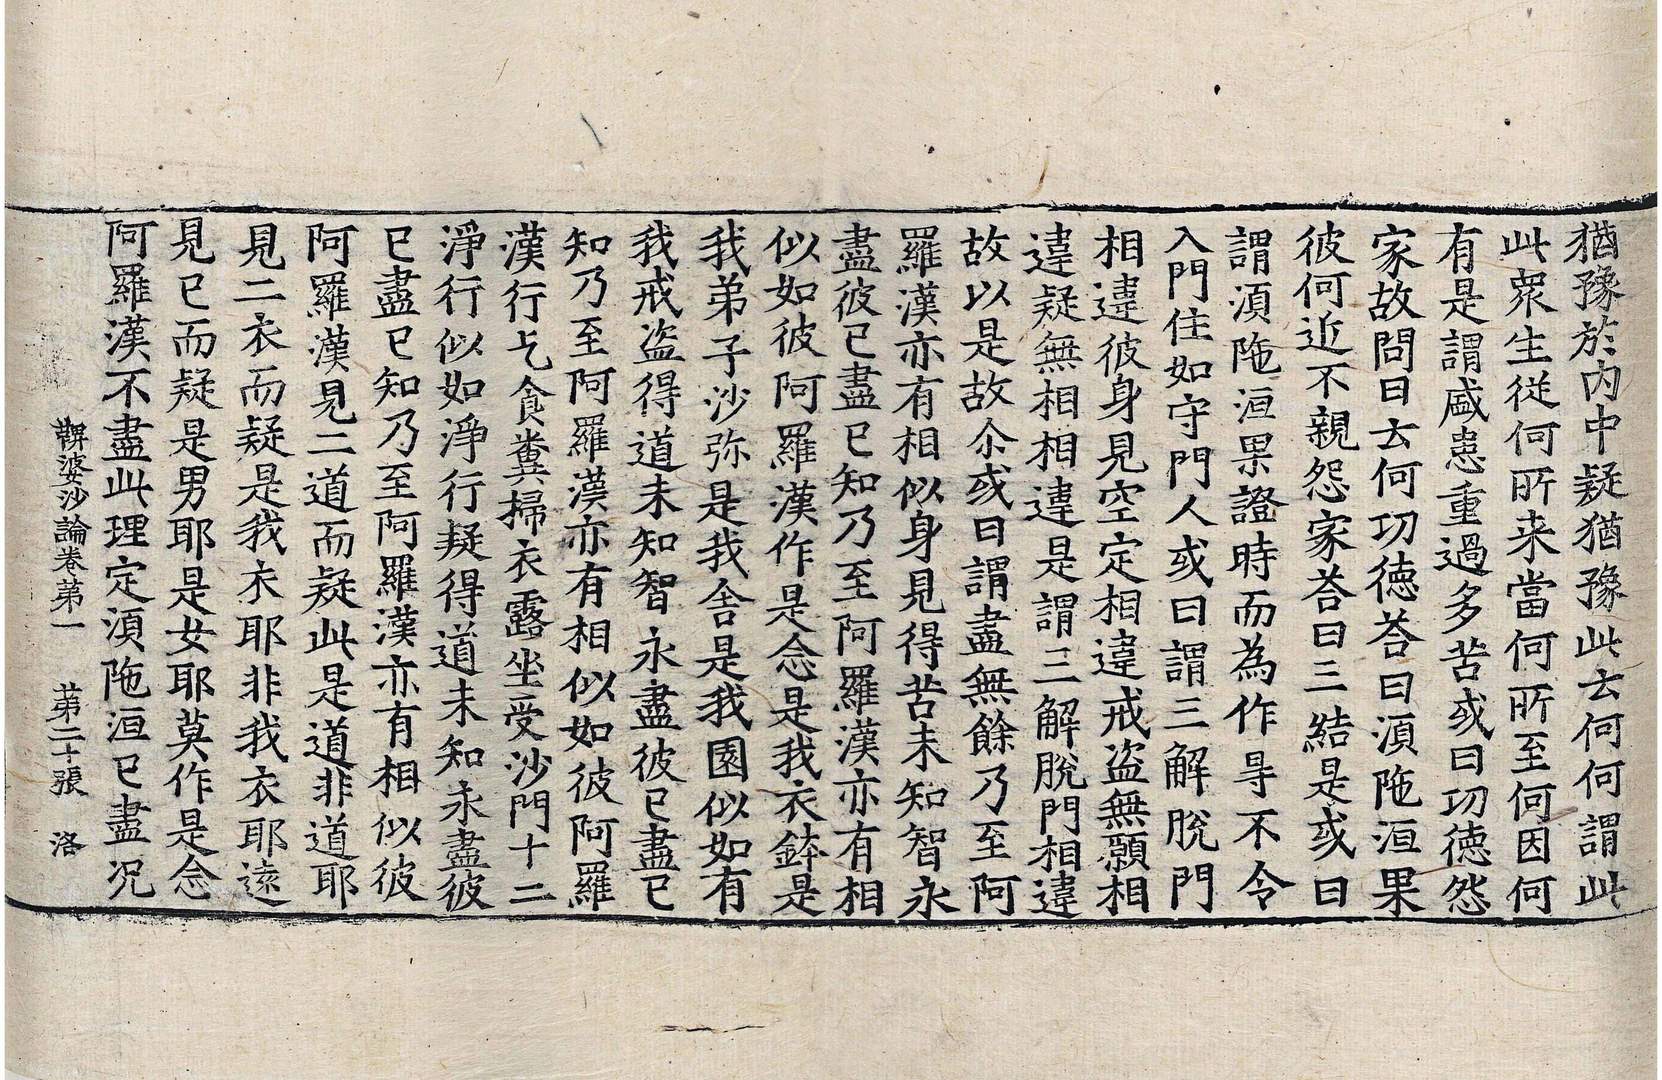 猶豫於內中疑猶豫此云何何謂此
此衆生從何所来當何所至何因何
有是謂盛患重過多苦或曰功德怨
家故問曰云何功德荅曰湏陁洹果
彼何近不親怨家荅曰三結是或曰
謂湏陁洹果證時而為作㝵不令
入門住如守門人或曰謂三解脫門
相違彼身見空定相違戒盜無願相
違疑無相相違是謂三解脫門相違
故以是故尒或曰謂盡無餘乃至阿
羅漢亦有相似身見得苦未知智永
盡彼已盡已知乃至阿羅漢亦有相
似如彼阿羅漢作是念是我衣鉢是
我弟子沙弥是我舍是我園似如有
我戒盜得道未知智永盡彼已盡已
知乃至阿羅漢亦有相似如彼阿羅
漢行乞食糞掃衣露坐受沙門十二
淨行似如淨行疑得道未知永盡彼
已盡已知乃至阿羅漢亦有相似彼
阿羅漢見二道而疑此是道非道耶
見二衣而疑是我衣耶非我衣耶遠
見已而疑是男耶是女耶莫作是念
阿羅漢不盡此理定湏陁洹已盡况
鞞婆沙論卷苐一 苐二十張 洛